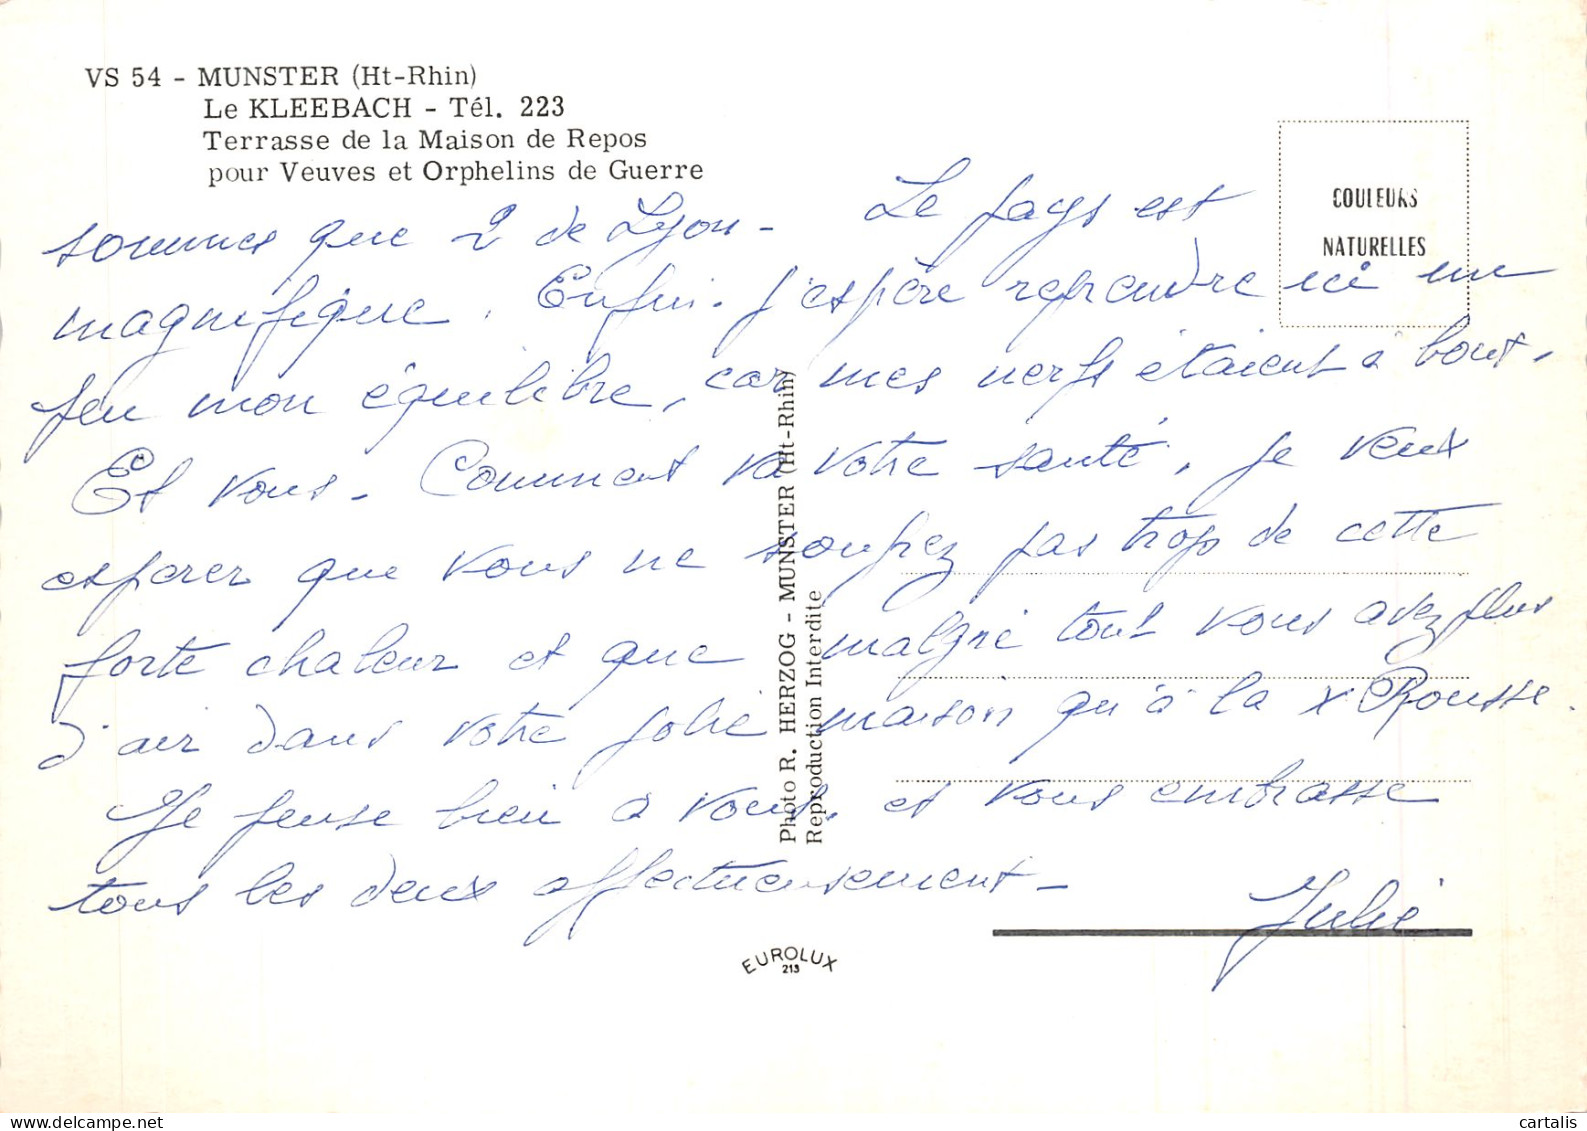 VS 54 - MUNSTER (Ht-Rhin)
Le KLEEBACH - Tél. 223
Terrasse de la Maison de Repos
pour Veuves et Orphelins de Guerre
COULEURS
NATURELLES
sommes que 2 de Lyon - Le pays est
magnifique. Enfin. J'espère reprendre ici un
peu mon équilibre, car mes nerfs étaient à bout.
Et vous. Comment va votre santé, je veux
esperer que vous ne soufrez pas trop de cette
forte chaleur et que malgré tout vous avez plus
d'air dans votre jolie maison qu'à la x Rousse.
Je pense bien à vous, et vous embrasse
tous les deux affectueusement -
Julie
Photo R. HERZOG - MUNSTER (Ht-Rhin)
Reproduction Interdite
EUROLUX
213
cartalis